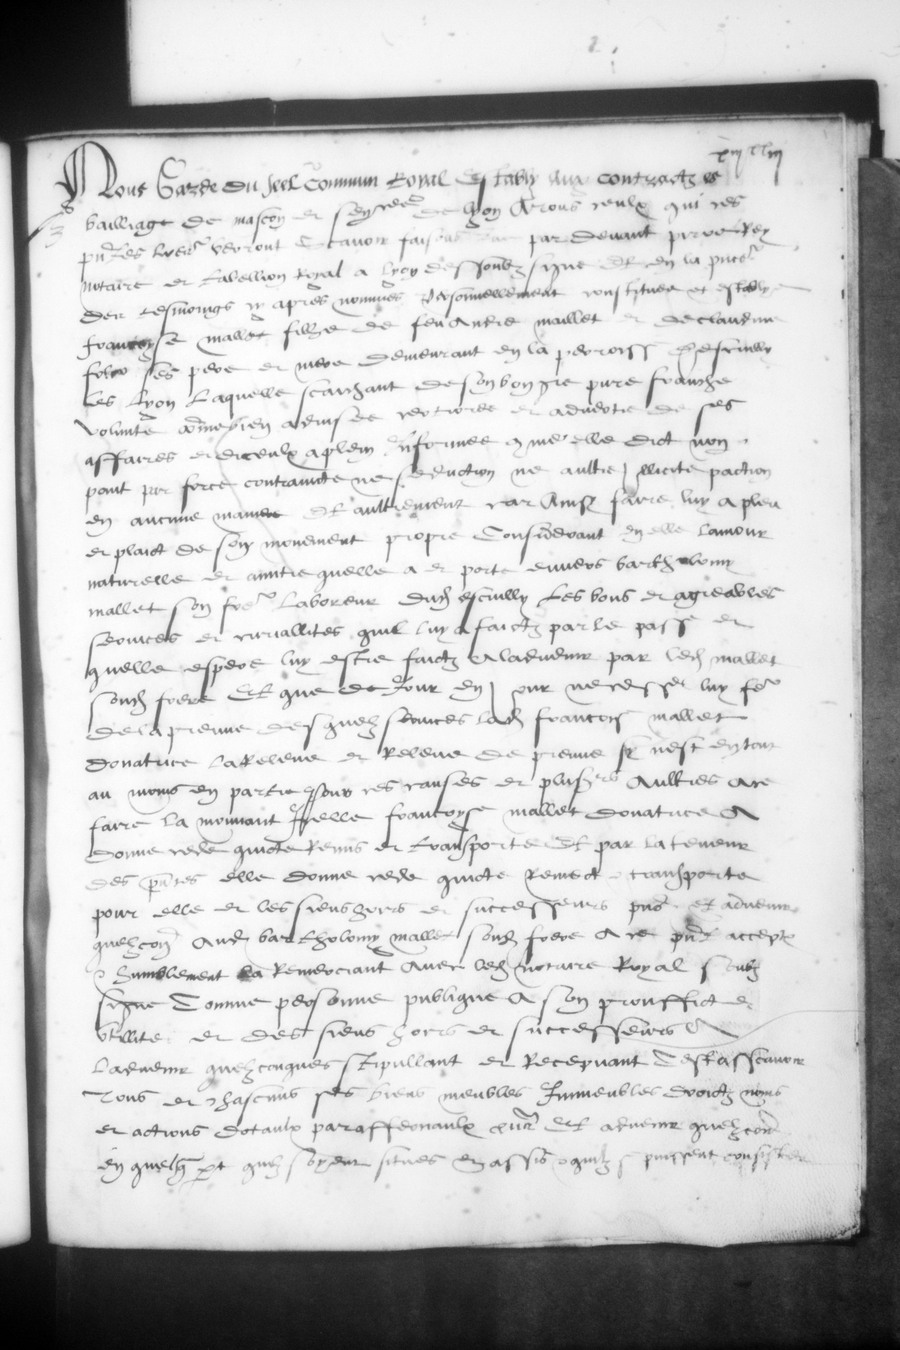 Nous Garde du Seel Commun Royal Establiy aux contractz es
bailliage de mascon et seneschaulcée de lyon A tous ceulx qui ces
pntes lres verront Scavoir faisons que par devant pierre Rey
notaire et tabellion Royal a lyon dessoubz signe Et en la pnce
des tesmoings cy apres nommes personnellement constituee et establye
francoyse mallet fille de feu Andre mallet et de claudine
ses pere et mere demeurant en la perroisse descully
les lyon Laquelle scaichant de son bon gre pure franche
volunte et bien advisee certioree et advertie de ses
affaires et diceulx a plein informee comme elle dict non
point par force contraincte ne seduction ne aultre illicite paction
en aucune maniere Et aultrement car Ainsi faire luy a pleu
et plaict de son mouvement propre Considerant en elle lamour
naturelle et amitie quelle a et porte envers bartholomy
mallet son frere laboreur dud escully Les bons et agreables
services et curiallites quil luy a faictz par le passe et
quelle espere luy estre faictz A ladvenir par led mallet
sond frere Et que de Jour en Jour ne cesse luy fe
de la preuve desquelz services lad francoise mallet
donatrice la Releve et Releve de preuve si nest en tout
au moins en partie pour ces causes et plusrs Aultres A ce
faire la mouvant Icelle francoyse mallet donatrice A
donne cede quicte Remis et transporte Et par la teneur
des pntes elle donne cede quicte Remect et transporte
pour elle et les siens hoirs et successeurs pns et advenir
quelzconq Aud bartholomy mallet sond frere A ce pnt accept
et humblement la Remerciant Avec led notaire Royal soubz
signe Comme personne publique A son prouffict et
utillite et des siens hoirs et successeurs A
ladvenir quelzconques stipullant et Recepvant Cest asscavoir
Tous et chascuns ses biens meubles Immeubles droictz noms
et actions dotaulx paraffernaulx pnt Et advenir quelzconq
en quelq part quilz soyent situes et assis et quilz puissent consister